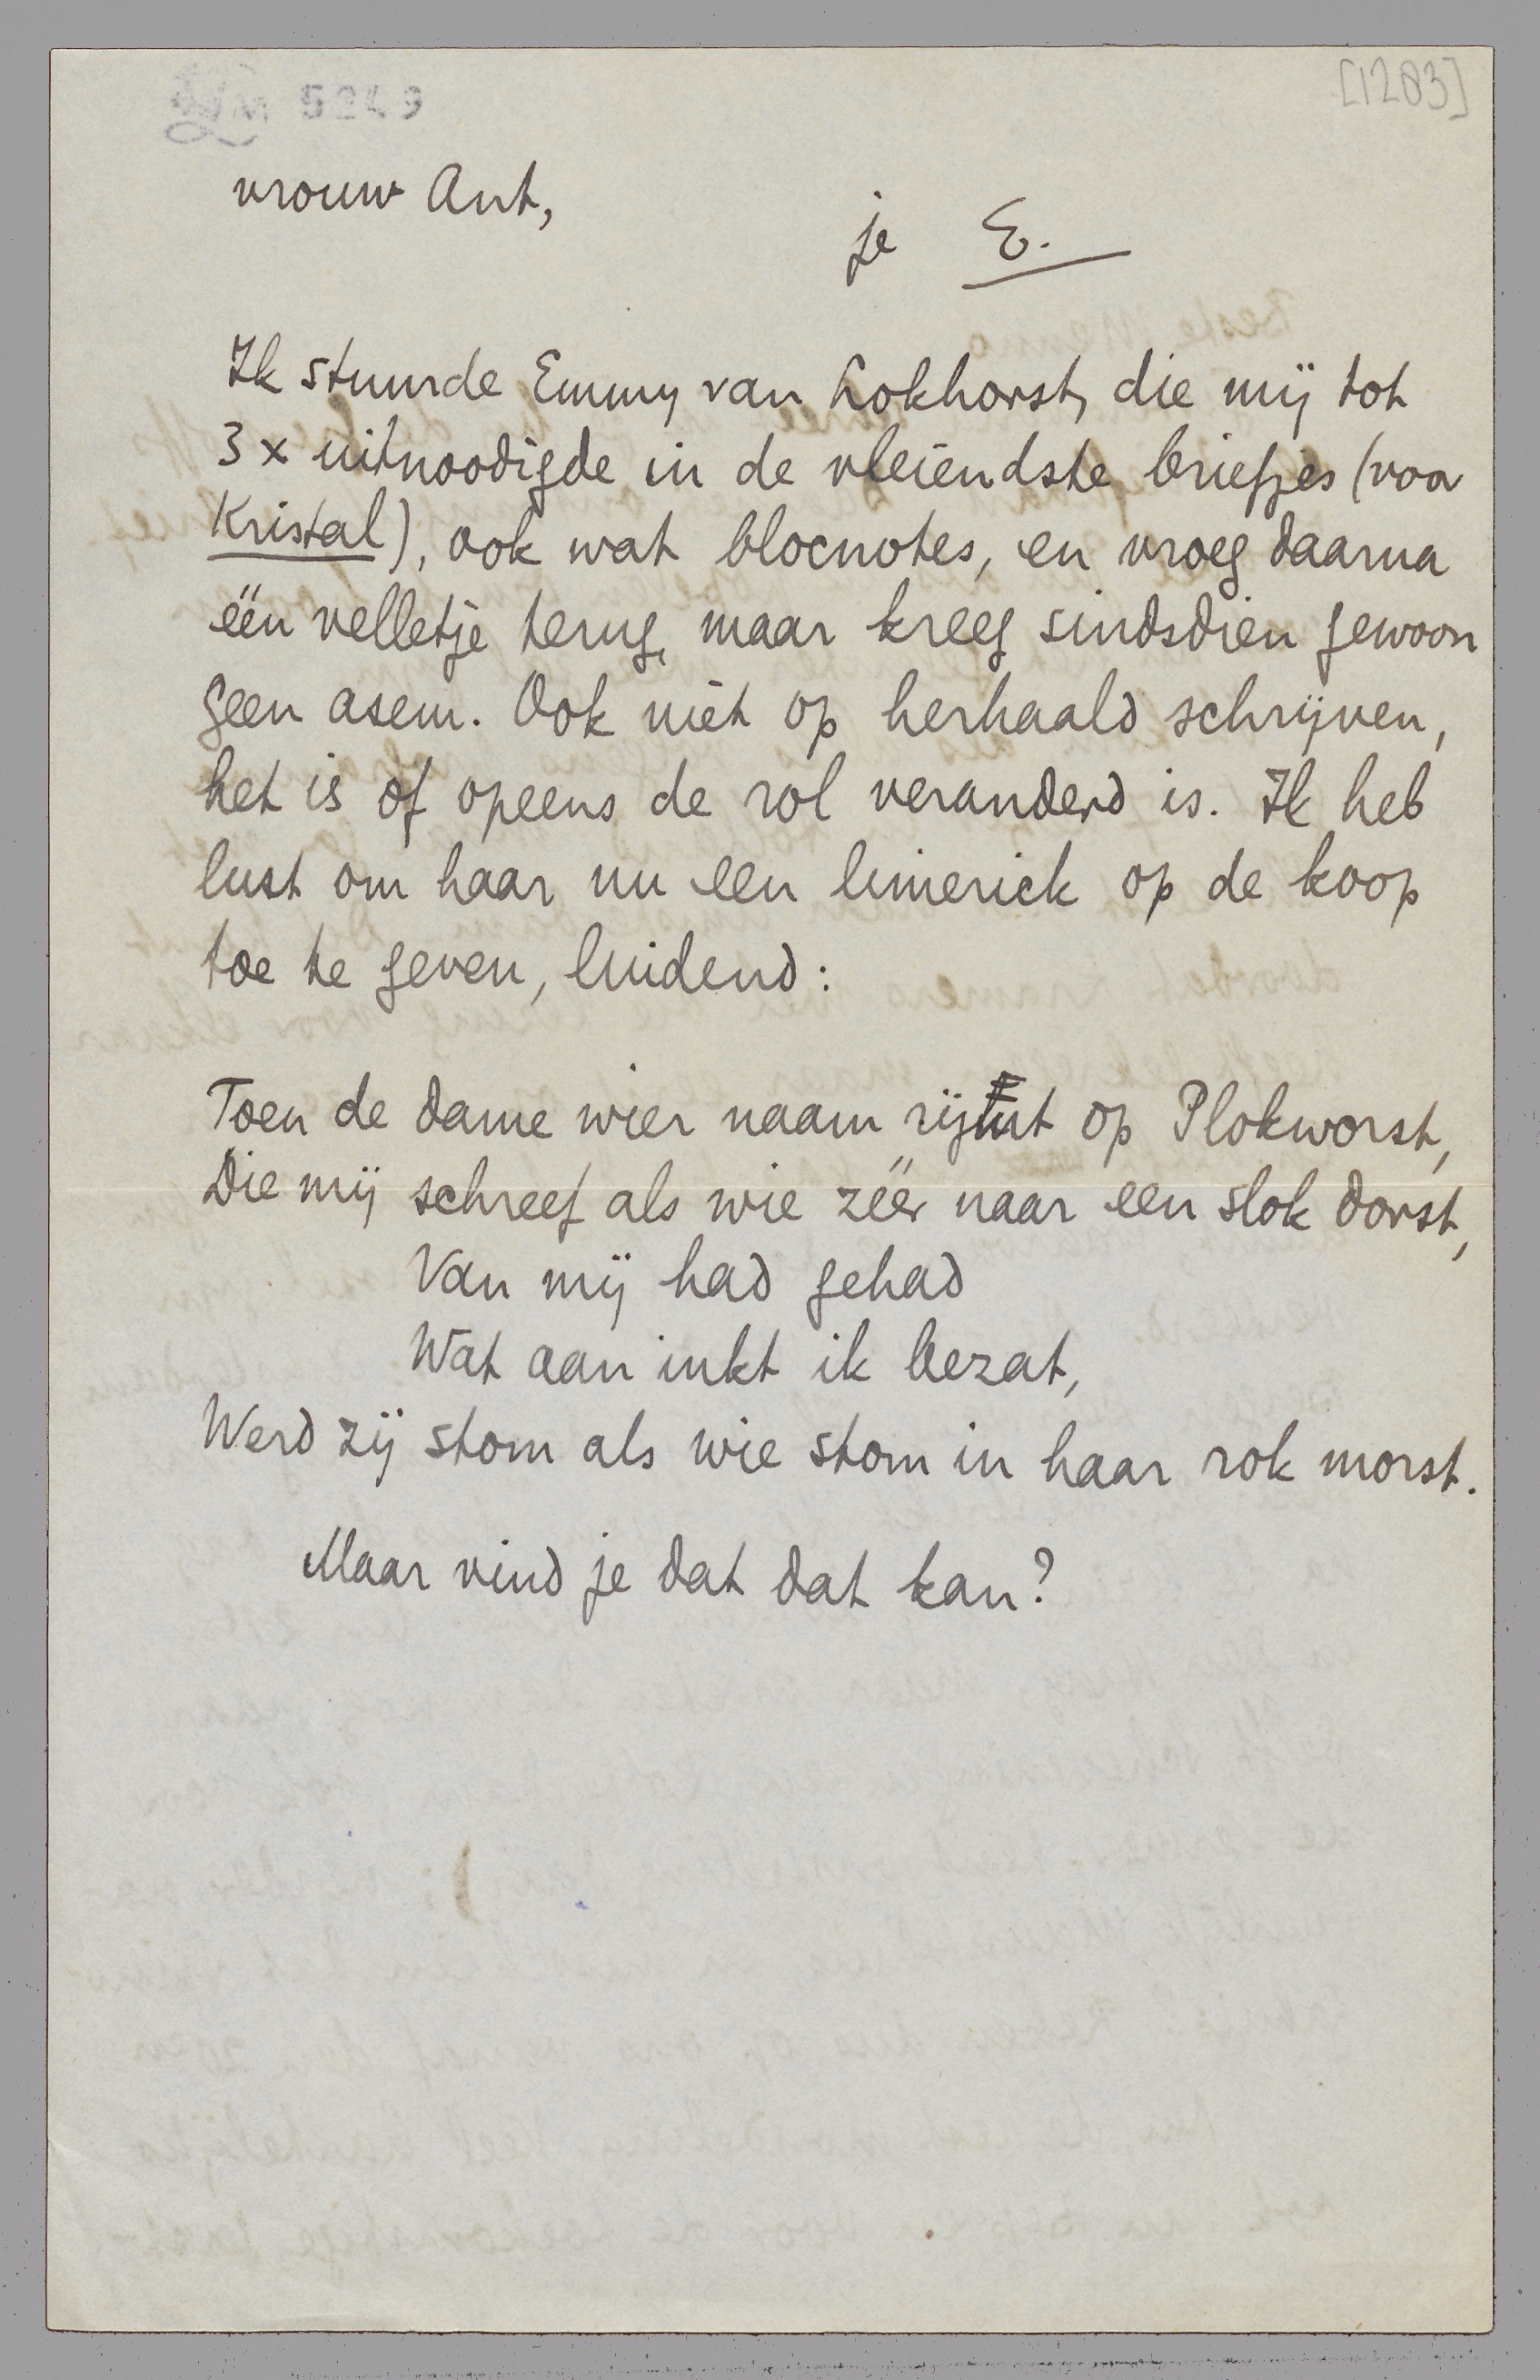 5249
[1203]
vrouw Ant,
je E.
Ik stuurde Emmy van Lokhorst, die mij tot
3 x uitnoodigde in de vleiendste briefjes (voor
Kristal), ook wat blocnotes, en vroeg daarna
één velletje terug, maar kreeg sindsdien gewoon
geen asem. Ook niet op herhaald schrijven,
het is of opeens de rol veranderd is. Ik heb
lust om haar nu een limerick op de koop
toe te geven, luidend:
Toen de dame wier naam rijmt op Plokworst,
Die mij schreef als wie zéér naar een slok dorst,
Van mij had gehad
Wat aan inkt ik bezat,
Werd zij stom als wie stom in haar rok morst.
Maar vind je dat dat kan?